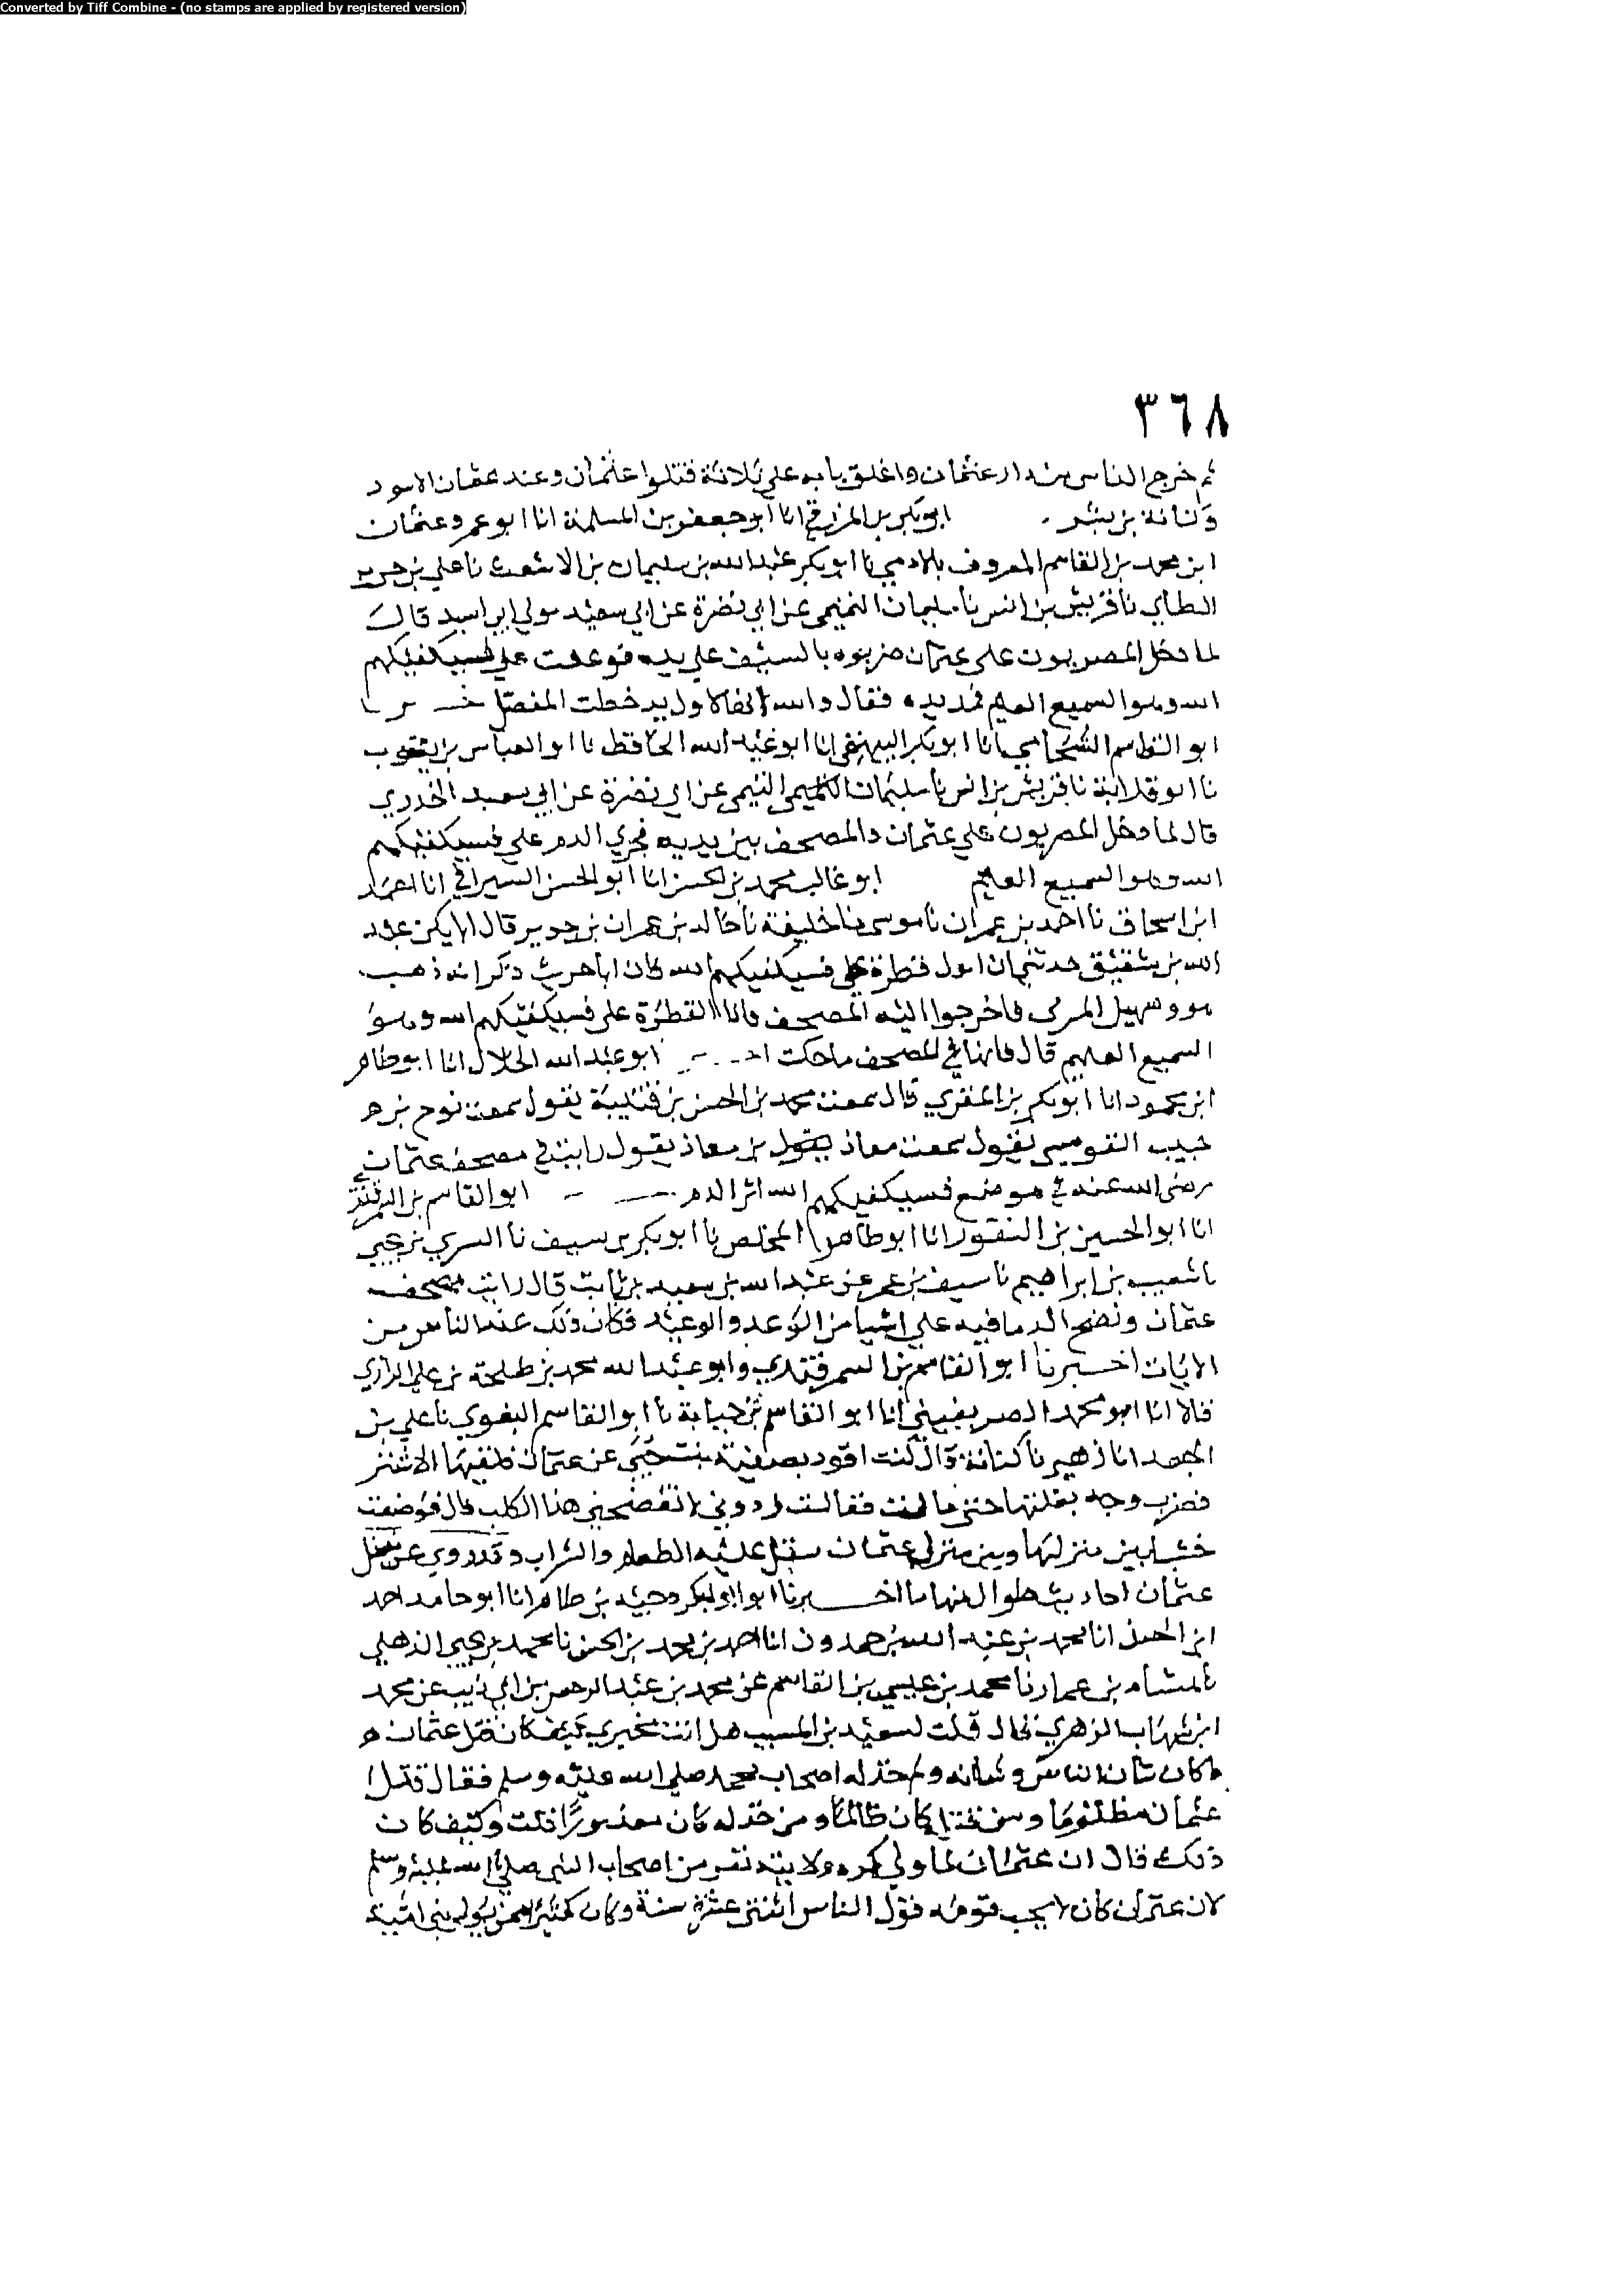 Converted by Tiff Combine - (no stamps are applied by registered version)
٣٦٨
ثم خرج الناس من دار عثمان واغلق بابه على ثلاثة قتلوا عثمان وعند عثمان الاسود
وكنانة بن بشر ابو بكر بن المزرفي انا ابو جعفر بن المسلمة انا ابو عمرو عثمان
ابن محمد بن القاسم المعروف بالادمي نا ابو بكر عبد الله بن سليمان بن الاشعث نا علي بن حرب
الطاي نا قريش بن انس نا سليمان التيمي عن ابي نضرة عن ابي سعيد مولى ابي اسيد قال
لما دخل المصريون على عثمان ضربوه بالسيف على يده فوقعت على فسيكفيكهم
الله وهو السميع العليم فمد يده فقال والله انها لاول يد خطت المفصل
ابو القاسم الشحامي انا ابو بكر البيهقي انا ابو عبد الله الحافظ نا ابو العباس بن يعقوب
نا ابو قلابة نا قريش بن انس نا سليمان التيمي عن ابي نضرة عن ابي سعيد الخدري
قال لما دخل المصريون على عثمان والمصحف بين يديه فجرى الدم على فسيكفيكهم
الله وهو السميع العليم ابو غالب محمد بن الحسن انا ابو الحسن السيرافي انا احمد
ابن اسحاق نا احمد بن عمران نا موسى نا خليفة نا خالد بن عمران بن حدير قال الا يكن عبد
الله بن شقيق حدثني ان اول قطرة على فسيكفيكهم الله فان ابا حريث ذكر انه ذهب
هو وسهيل المري فاخرجوا اليه المصحف فاذا القطرة على فسيكفيكهم الله وهو
السميع العليم قال فانها في المصحف ما حكت ابو عبد الله الخلال انا ابو طاهر
ابن محمود انا ابو بكر بن المقري قال سمعت محمد بن الحسن بن قتيبة يقول سمعت نوح بن
حبيب القومسي يقول سمعت معاذ بن معاذ يقول رايت في مصحف عثمان
رضى الله عنه في موضع فسيكفيكهم الله اثر الدم ابو القاسم بن السمرقندي
انا ابو الحسين بن النقور انا ابو طاهر المخلص نا ابو بكر بن سيف نا السري بن يحيى
نا شعيب بن ابراهيم نا سيف بن عمر عن عبد الله بن سعيد بن ثابت قال رايت مصحف
عثمان ونضح الدما فيه على اشيا من الوعد والوعيد فكان ذلك عند الناس من
الايات اخبرنا ابو القاسم بن السمرقندي وابو عبد الله محمد بن طلحة بن علي الرازي
قالا انا ابو محمد الصريفيني انا ابو القاسم بن حبابة نا ابو القاسم البغوي نا علي بن
الجعد انا زهير نا كنانة قال كنت اقود بصفية بنت حيي عن عثمان فلقيها الاشتر
فضرب وجه بغلتها حتى مالت فقالت ردوني لا يفضحني هذا الكلب قال فوضعت
خشبا بين منزلها وبين منزل عثمان تنقل عليه الطعام والشراب وقد روي عن مقتل
عثمان احاديث طوال منها ما اخبرنا ابو بكر وجيه بن طاهر انا ابو حامد احمد
ابن الحسن انا محمد بن عبد الله بن حمدون انا احمد بن محمد بن الحسن نا محمد بن يحيى الذهلي
نا هشام بن عمار نا محمد بن عيسى بن القاسم عن محمد بن عبد الرحمن بن ابي ذيب عن محمد
ابن شهاب الزهري قال قلت لسعيد بن المسيب هل انت مخبري كيف كان قتل عثمان
ما كان شان الناس وشانه ولم خذله اصحاب محمد صلى الله عليه وسلم فقال قتل
عثمان مظلوما ومن قتله كان ظالما ومن خذله كان معذورا قلت وكيف كان
ذلك قال ان عثمان لما ولي كره ولايته نفر من اصحاب النبي صلى الله عليه وسلم
لان عثمان كان يحب قومه فولي الناس اثنتي عشرة سنة وكان كثيرا ممن يولي بني امية